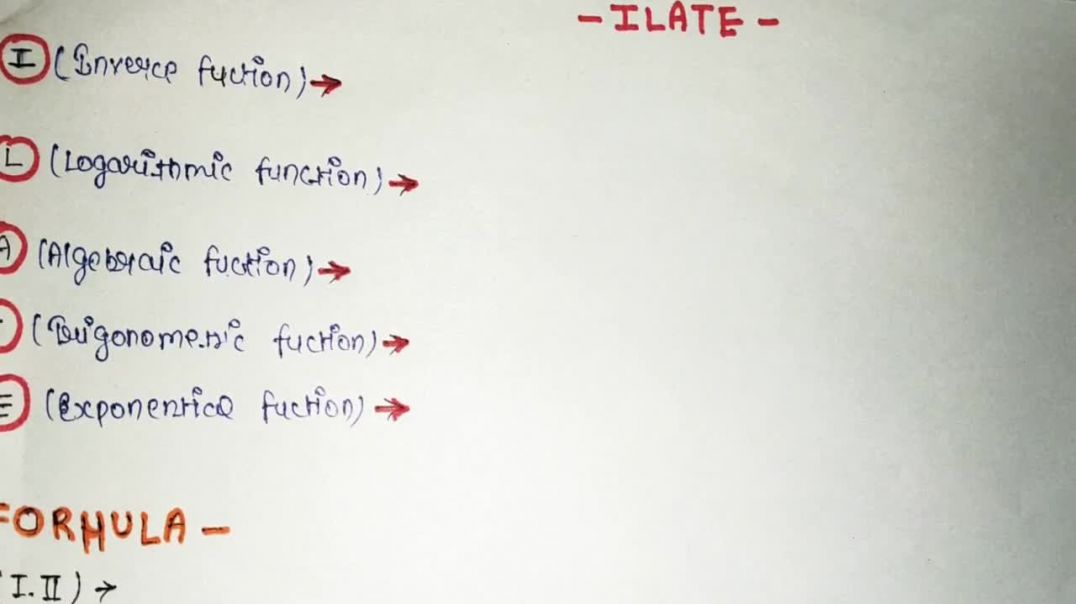 - ILATE -
I (Inverce fuction) →
L (Logarithmic function) →
A (Algebraic fuction) →
(Trigonometric fuction) →
E (Exponentical fuction) →
FORHULA -
(I.II) →